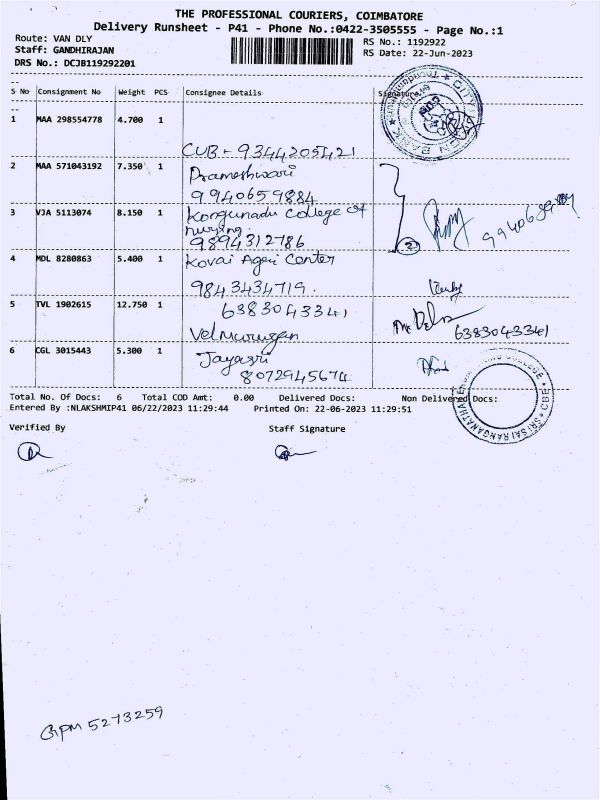 THE PROFESSIONAL COURIERS, COIMBATORE
Delivery Runsheet - P41 - Phone No.:0422-3505555 - Page No.:1
Route: VAN DLY
RS No.: 1192922
Staff: GANDHIRAJAN
RS Date: 22-Jun-2023
DRS No.: DCJB119292201
S No Consignment No Weight PCS Consignee Details Signature
1 MAA 298554778 4.700 1
CUB - 9344205421
2 MAA 571043192 7.350 1 Prameshwari
9940659884
3 VJA 5113074 8.150 1 Kongunadu College of
nursing.
9894312786
2
4 MDL 8280863 5.400 1 Kovai Agri Center
9843434719.
5 TVL 1902615 12.750 1 6383043341
Velmurugan
6383043341
6 CGL 3015443 5.300 1 Jayasri
8072945674
Total No. Of Docs: 6 Total COD Amt: 0.00 Delivered Docs: Non Delivered Docs:
Entered By :NLAKSHMIP41 06/22/2023 11:29:44 Printed On: 22-06-2023 11:29:51
Verified By Staff Signature
5273259